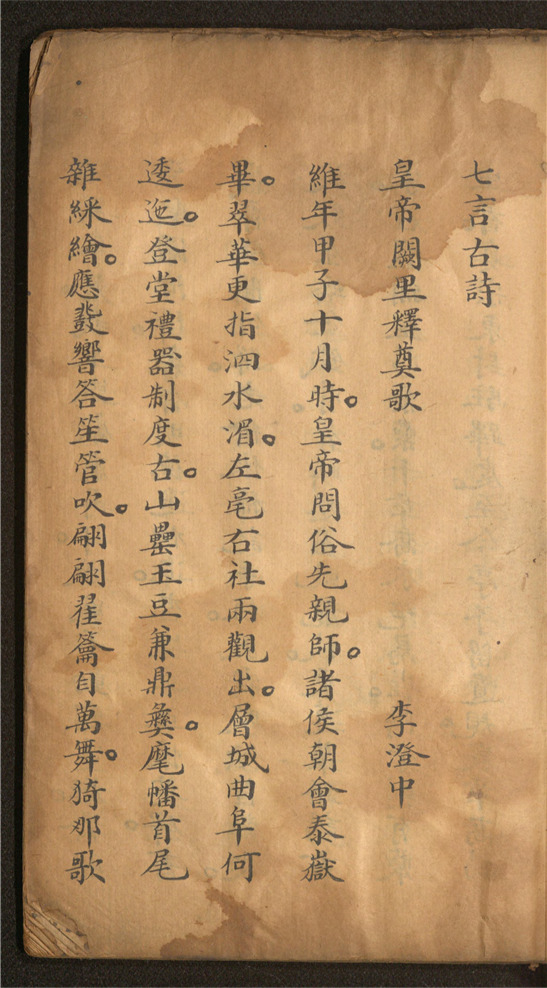 七言古詩
皇帝闕里釋奠歌 李澄中
維年甲子十月時。皇帝問俗先親師。諸侯朝會泰嶽
畢。翠華更指泗水湄。左亳右社兩觀出。層城曲阜何
逶迤。登堂禮器制度古。山罍玉豆兼鼎彝。麾幡首尾
雜綵繪。應鼗響答笙管吹。翩翩翟籥自萬舞。猗那歌